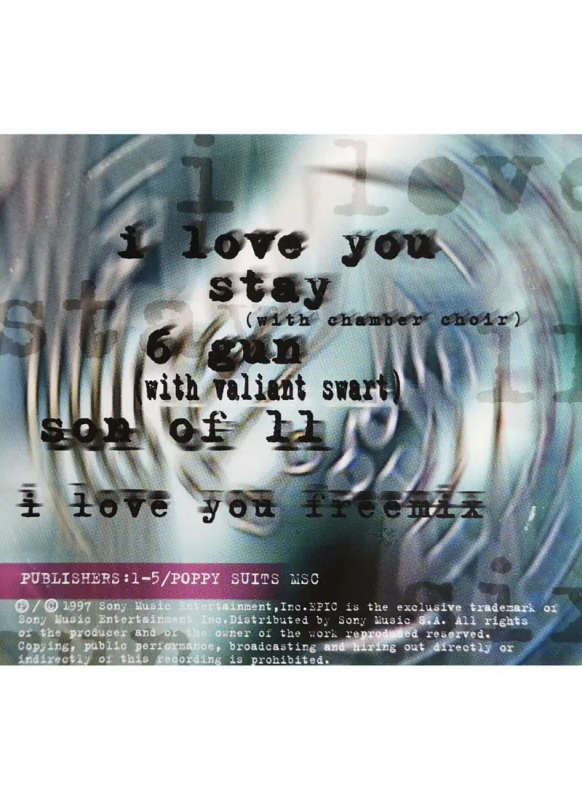 i love
i love you
stay
stay
(with chamber choir)
6 gun
(with valiant swart)
son of ll
i love you freemix
PUBLISHERS:1-5/POPPY SUITS MSC
six
Ⓟ/© 1997 Sony Music Entertainment,Inc.EPIC is the exclusive trademark of
Sony Music Entertainment Inc.Distributed by Sony Music S.A. All rights
of the producer and of the owner of the work reproduced reserved.
Copying, public performance, broadcasting and hiring out directly or
indirectly of this recording is prohibited.